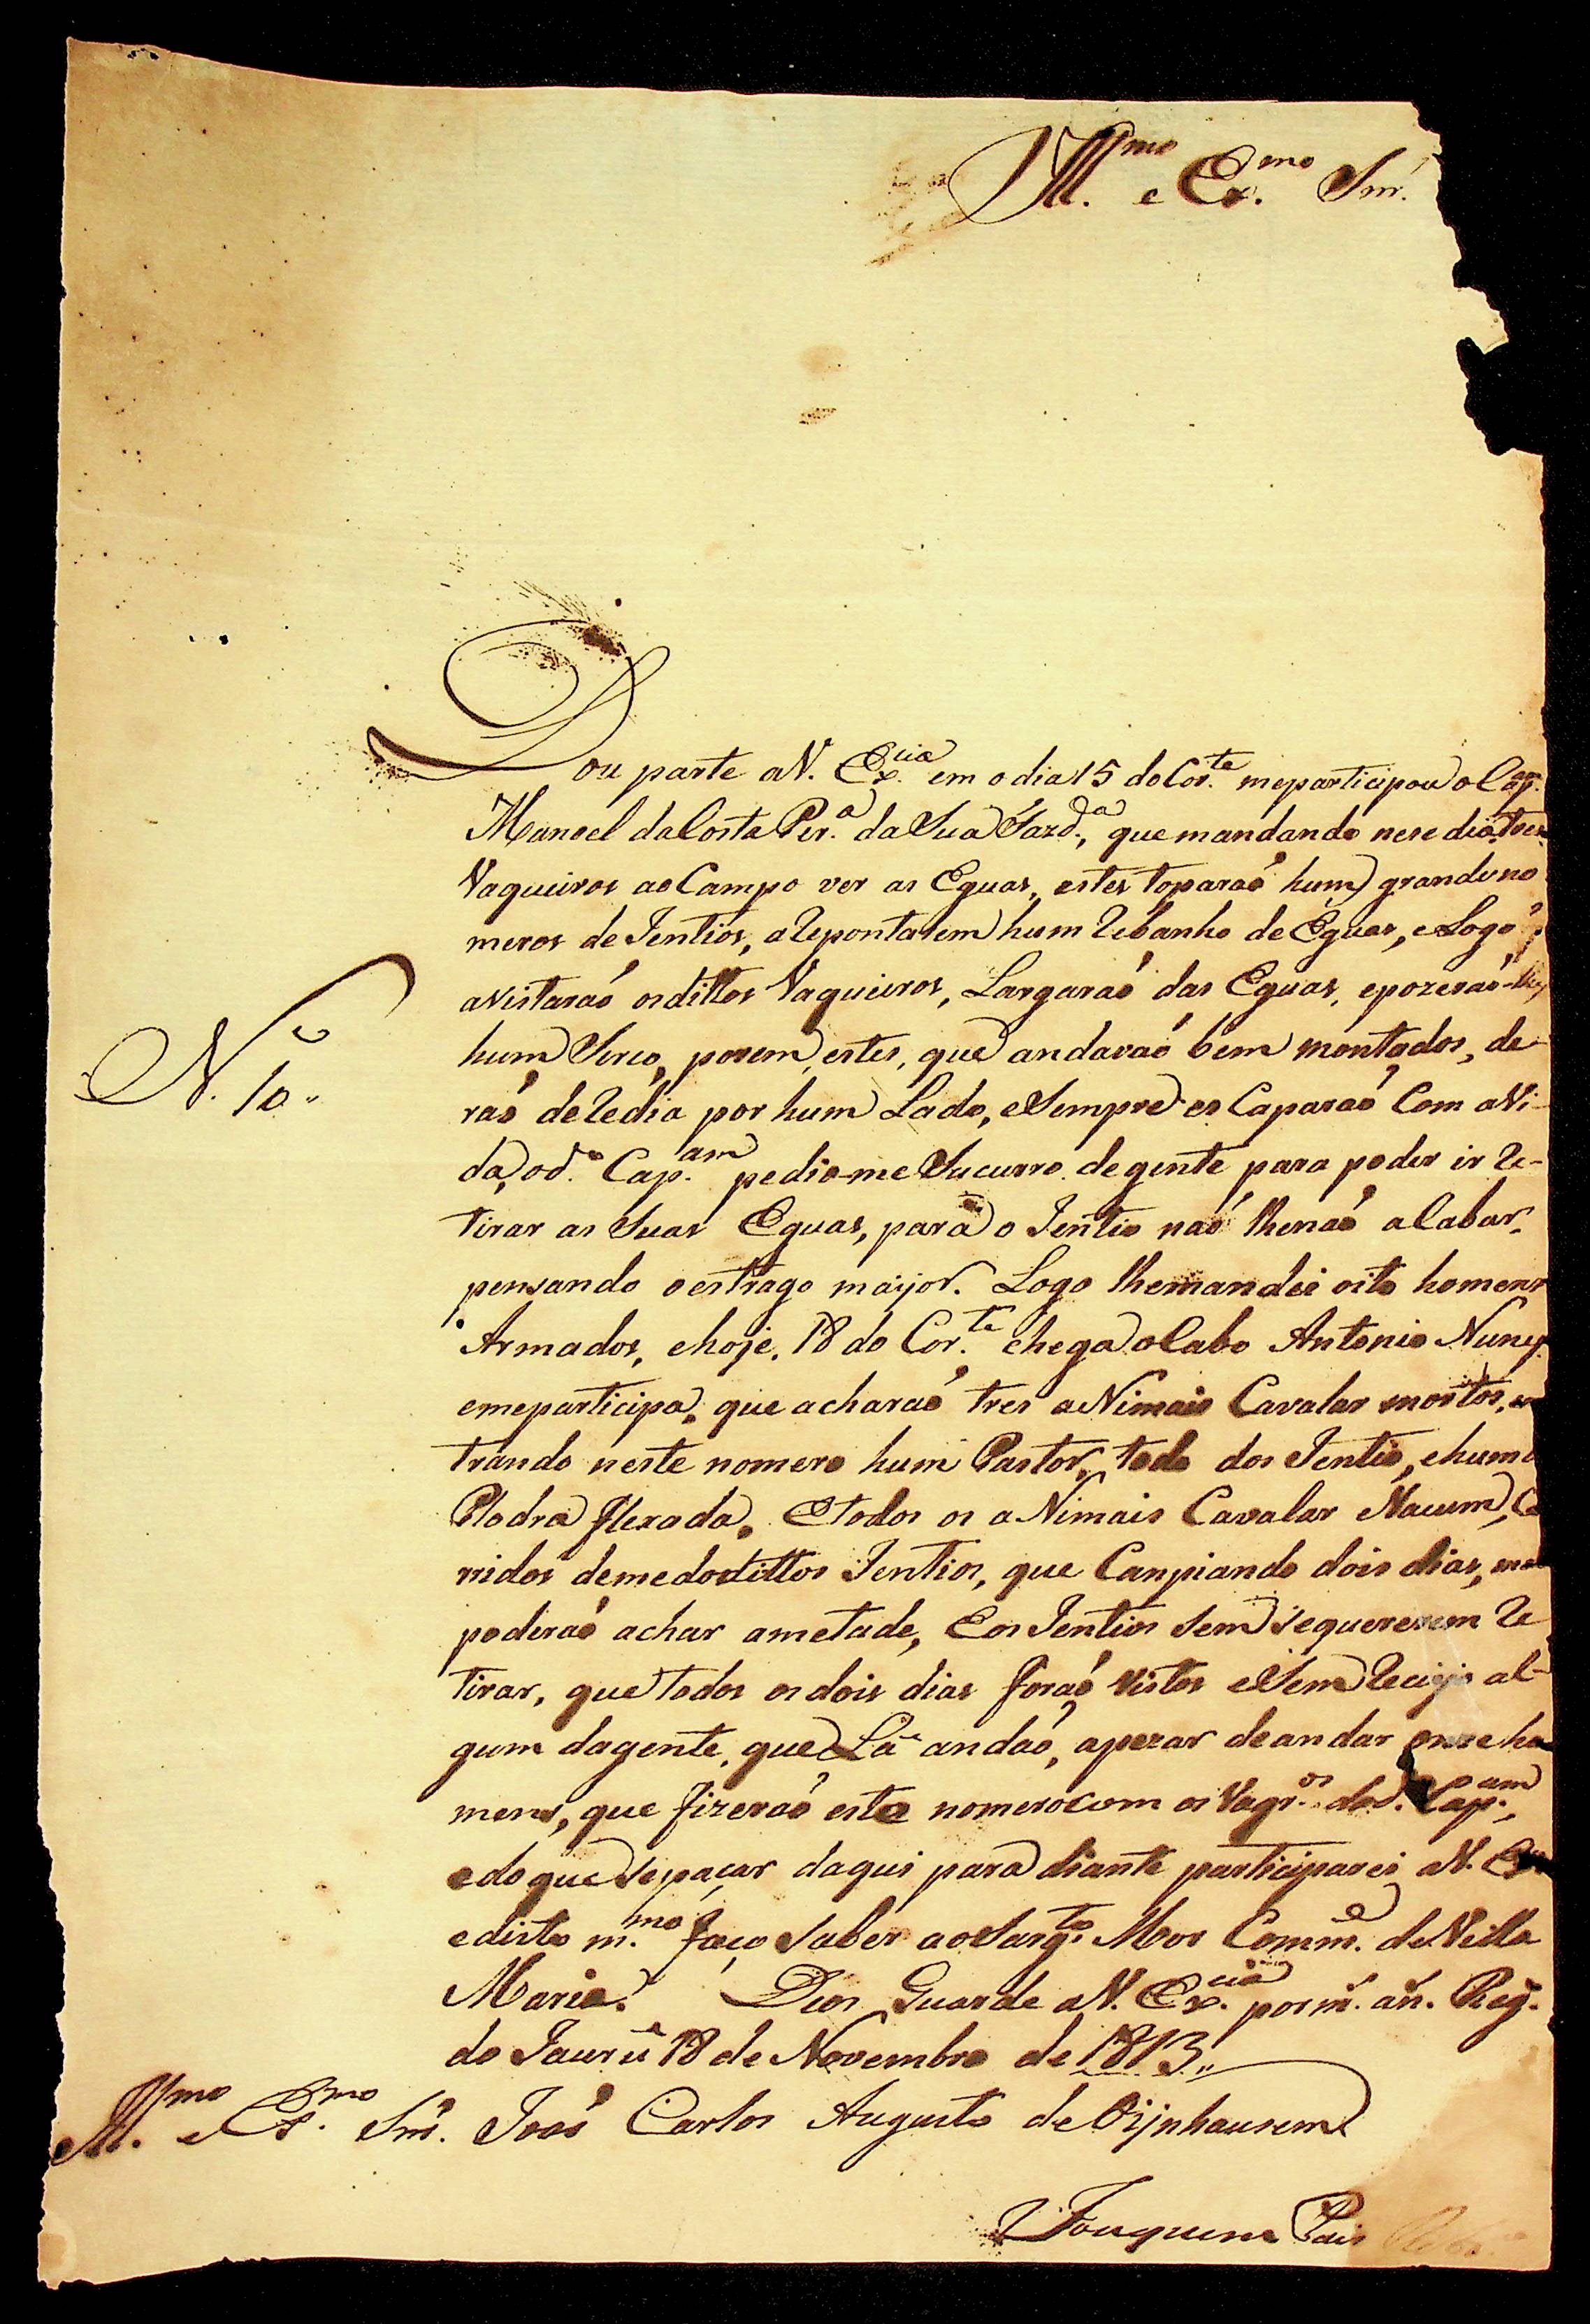 Ill.mo e Ex.mo Snr.
Dou parte aV. Ex.cia em o dia 15 do Cor.te meparticipou o Cap.am
Manoel da Costa Per.a da Sua Fazd.a, que mandando nese dia tres
Vaqueiros ao Campo ver as Eguas, estes toparaó hum grande no
meros de Jentios, a Repontarem hum Rebanho de Eguas, e Logo q
avistaraó os dittos Vaqueiros, Largaraó das Eguas, epozeraó-lhes
hum Serco, porem estes, que andavaó bem montados, de-
raó de Redia por hum Lado, eSempre es Caparaó Com aVi-
da, o d.o Cap.am pedio-me Sucurro de gente para poder ir Re-
tirar as Suas Eguas, para o Jentio naó lhenaó aCabar,
pensando o estrago maijor. Logo lhemandei oito homens
Armados, ehoje, 18 do Cor.te chega o Cabo Antonio Nunes
emeparticipa, que acharaó tres aNimais Cavalar mortos, en
trando neste nomero hum Pastor, todo dos Jentio, ehuma
Podra flexada, Etodos os aNimais Cavalar Nacum, Co
ridos demedo dittos Jentios, que Canpiando dois dias, mal
poderaó achar ametade, Eos Jentios Sem sequererem Re
tirar, que todos os dois dias foraó vistos eSem Receijo al-
gum dagente, que Lá andaó, apezar deandar onze ho
mens, que fizeraó este nomero com os Vaqr.os do d. Cap.am,
edoque Sepaçar daqui para diante participarei aV. Ex
edisto m.mo faço Saber aoSarg.to Mor Comm.e de Villa
Maria. Deos Guarde aV. Ex.cia por m. an. Reg.
do Jaurú 18 de Novembro de 1813,,
N. 10.
Ill.mo e Ex.mo Snr. Joaó Carlos Augusto de Oijnhausem
Joaquim Pais